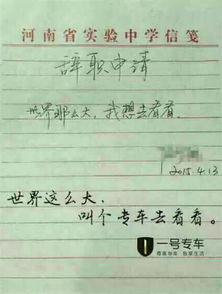 河南省实验中学信笺
辞职申请
世界那么大，我想去看看。
2015.4.13
世界这么大，
叫个专车去看看。
一号专车